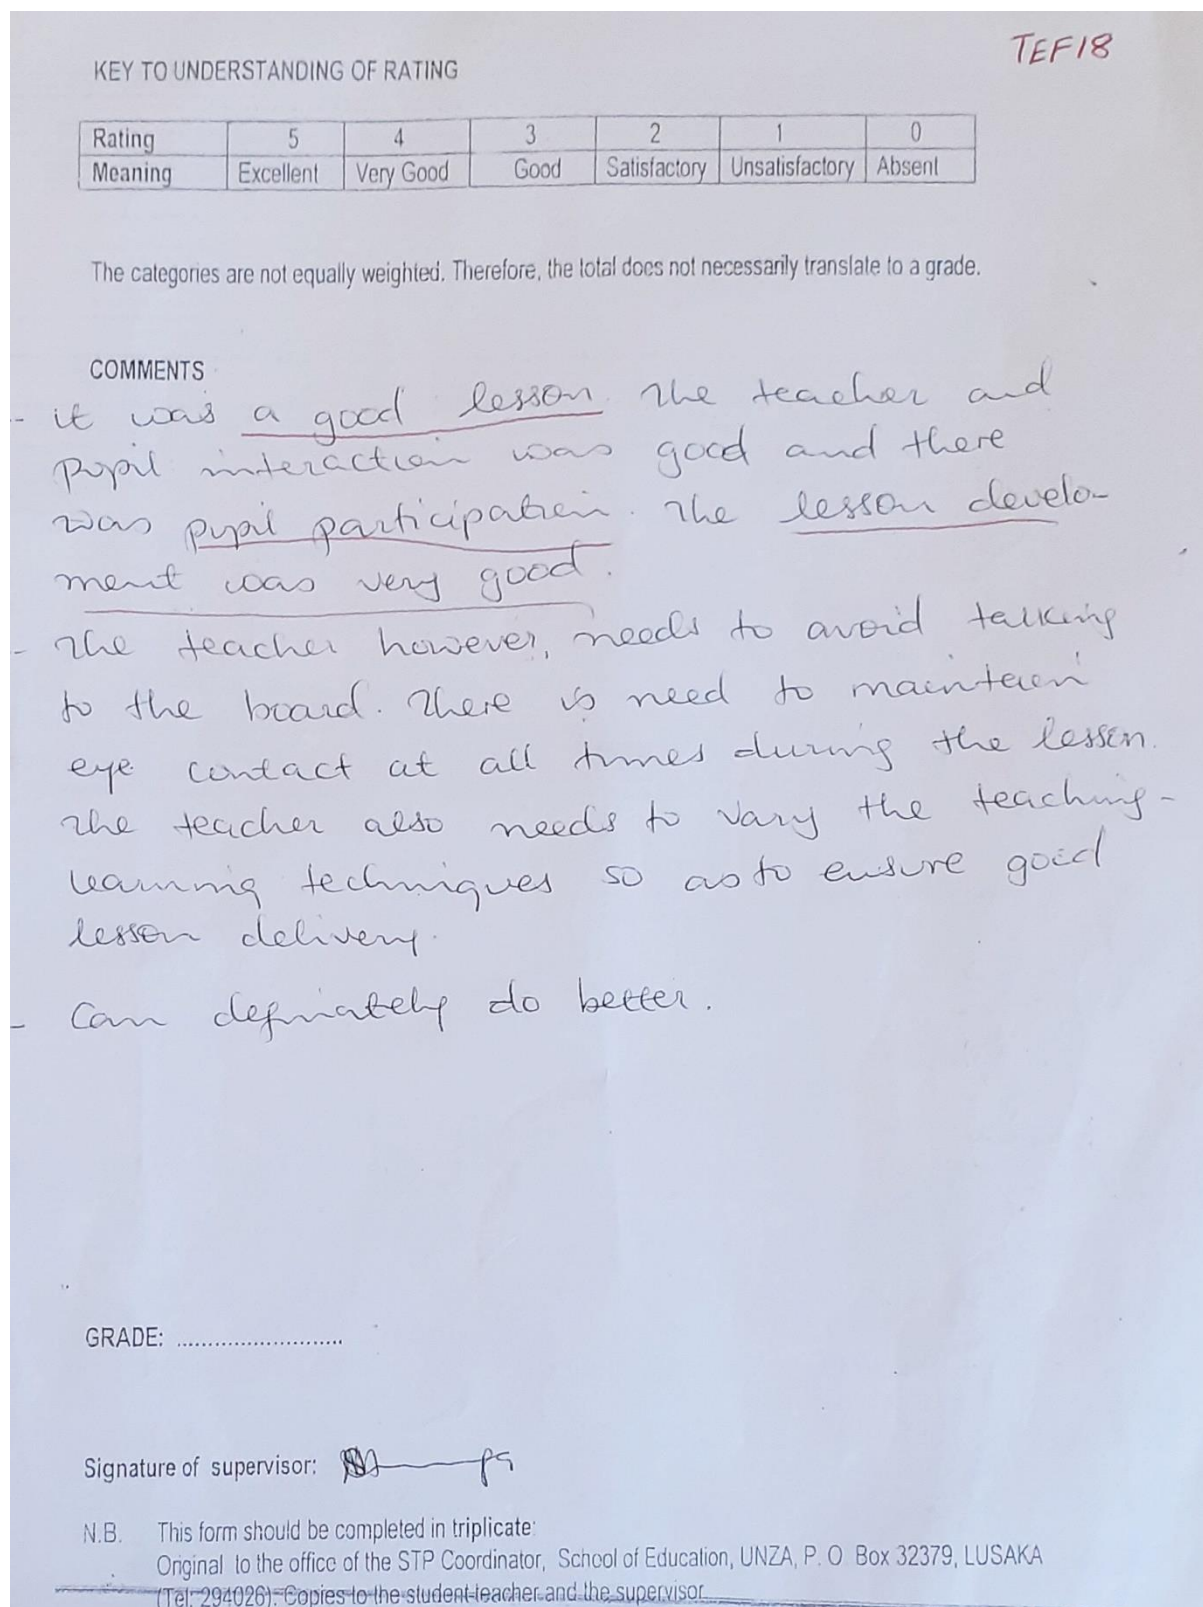 TEF18
KEY TO UNDERSTANDING OF RATING
Rating 5 4 3 2 1 0
Meaning Excellent Very Good Good Satisfactory Unsatisfactory Absent
The categories are not equally weighted. Therefore, the total does not necessarily translate to a grade.
COMMENTS
- it was a good lesson. The teacher and
pupil interaction was good and there
was pupil participation. The lesson develo-
ment was very good.
- The teacher however, needs to avoid talking
to the board. There is need to maintain
eye contact at all times during the lesson.
The teacher also needs to vary the teaching-
learning techniques so as to ensure good
lesson delivery.
- Can definately do better.
GRADE: ...........................
Signature of supervisor:
N.B. This form should be completed in triplicate:
Original to the office of the STP Coordinator, School of Education, UNZA, P. O Box 32379, LUSAKA
(Tel: 294026). Copies to the student-teacher and the supervisor